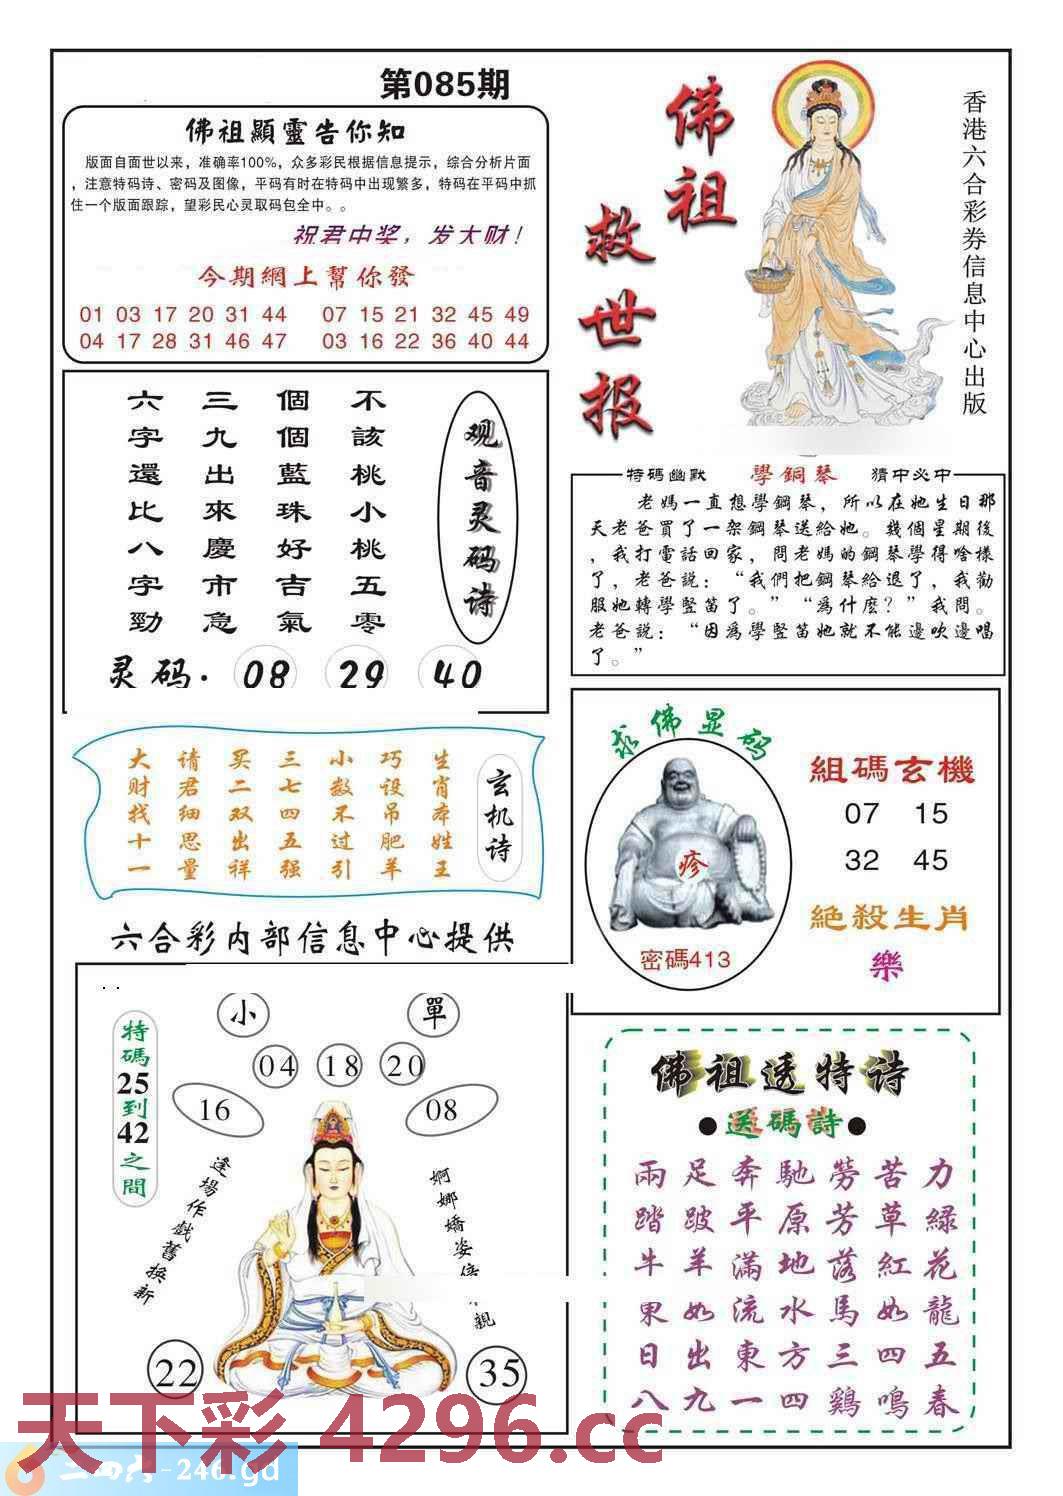 第085期
佛祖顯靈告你知
版面自面世以来，准确率100%，众多彩民根据信息提示，综合分析片面
，注意特码诗、密码及图像，平码有时在特码中出现繁多，特码在平码中抓
住一个版面跟踪，望彩民心灵取码包全中。。
祝君中奖，发大财！
今期網上幫你發
01 03 17 20 31 44 07 15 21 32 45 49
04 17 28 31 46 47 03 16 22 36 40 44
佛祖
救世报
香港六合彩券信息中心出版
观音灵码诗
不該桃小桃五零
個個藍珠好吉氣
三九出來慶市急
六字還比八字勁
灵码. 08 29 40
特碼幽默 學鋼琴 猜中必中
老媽一直想學鋼琴，所以在她生日那
天老爸買了一架鋼琴送給她。幾個星期後
，我打電話回家，問老媽的鋼琴學得啥樣
了，老爸説：“我們把鋼琴給退了，我勸
服她轉學豎笛了。”“爲什麽？”我問。
老爸説：“因爲學豎笛她就不能邊吹邊唱
了。”
玄机诗
生肖本姓王
巧设吊肥羊
小数不过引
三七四五强
买二双出祥
请君细思量
大财找十一
求佛显码
疹
密碼413
組碼玄機
07 15
32 45
絕殺生肖
樂
六合彩内部信息中心提供
特碼25到42之間
小 單
04 18 20
16 08
逢場作戲舊换新
婀娜嬌姿倍 親
22 35
佛祖透特诗
●送碼詩●
兩足奔馳勞苦力
踏跛平原芳草緑
牛羊滿地落紅花
果如流水馬如龍
日出東方三四五
八九一四鷄鳴春
天下彩 4296.cc
二四六-246.gd